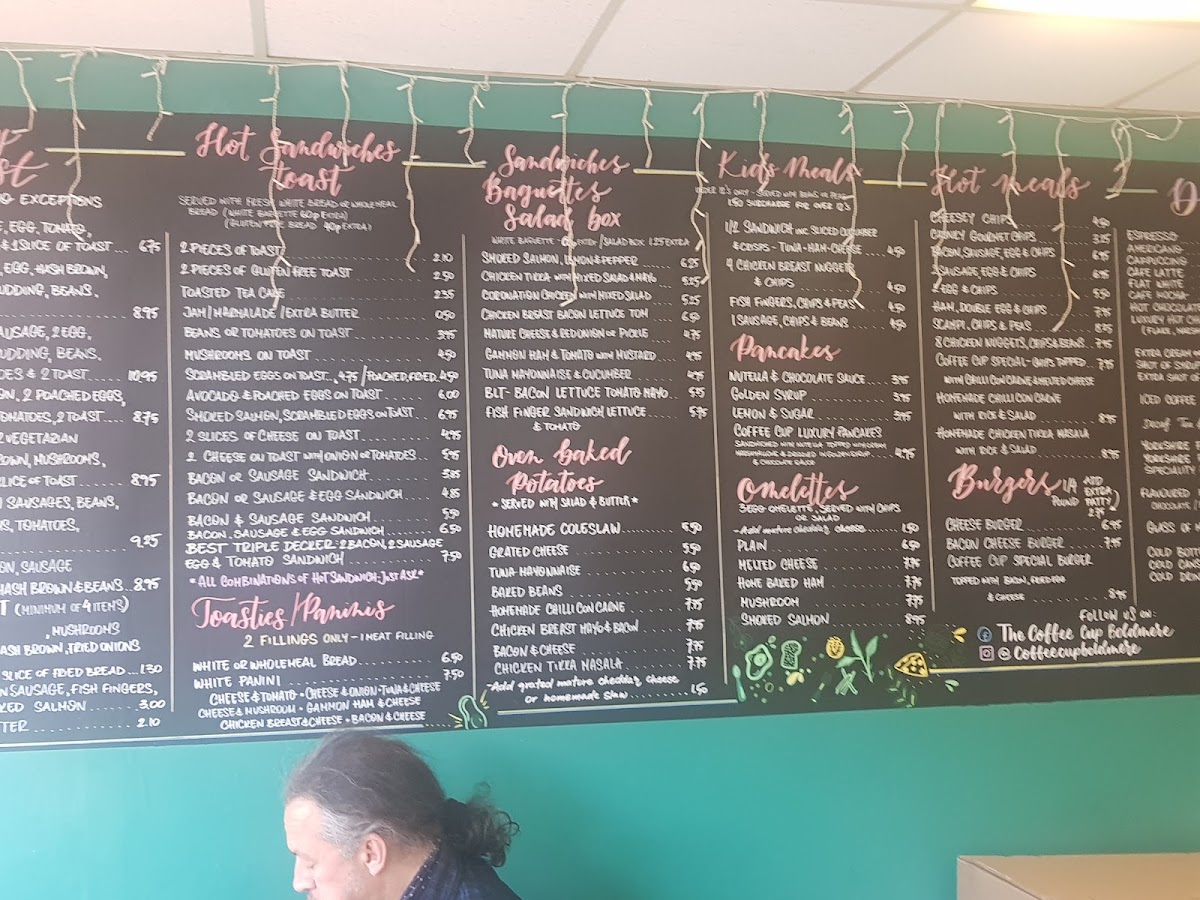 NO EXCEPTIONS
EGG, TOMATO,
& 1 SLICE OF TOAST... 6.75
EGG, HASH BROWN,
PUDDING, BEANS,
8.95
SAUSAGE, 2 EGG,
PUDDING, BEANS,
& 2 TOAST..... 10.95
2 POACHED EGGS,
TOMATOES, 2 TOAST.... 8.75
VEGETARIAN
BROWN, MUSHROOMS,
SLICE OF TOAST 8.95
SAUSAGES, BEANS,
TOMATOES,
9.25
SAUSAGE
HASH BROWN & BEANS.. 8.95
(MINIMUM OF 4 ITEMS)
, MUSHROOMS
HASH BROWN, FRIED ONIONS
SLICE OF FRIED BREAD... 1.30
SAUSAGE, FISH FINGERS,
SALMON 3.00
2.10
Hot Sandwiches
Toast
SERVED WITH FRESH WHITE BREAD OR WHOLEMEAL
BREAD (WHITE BAGUETTE 60p EXTRA)
(GLUTEN FREE BREAD 40p EXTRA)
2 PIECES OF TOAST 2.10
2 PIECES OF GLUTEN FREE TOAST 2.50
TOASTED TEA CAKE 2.35
JAM / MARMALADE / EXTRA BUTTER 0.50
BEANS OR TOMATOES ON TOAST 3.95
MUSHROOMS ON TOAST 4.50
SCRAMBLED EGGS ON TOAST... 4.75 / POACHED, FRIED. 4.50
AVOCADO & POACHED EGGS ON TOAST 6.00
SMOKED SALMON, SCRAMBLED EGGS ON TOAST 6.95
2 SLICES OF CHEESE ON TOAST 4.95
2 CHEESE ON TOAST WITH ONION OR TOMATOES 5.45
BACON OR SAUSAGE SANDWICH 3.85
BACON OR SAUSAGE & EGG SANDWICH 4.85
BACON & SAUSAGE SANDWICH 5.50
BACON, SAUSAGE & EGG SANDWICH 6.50
BEST TRIPLE DECKER: 2 BACON, 2 SAUSAGE
EGG & TOMATO SANDWICH 7.50
*ALL COMBINATIONS OF HOT SANDWICH - JUST ASK*
Toasties/Paninis
2 FILLINGS ONLY - 1 MEAT FILLING
WHITE OR WHOLEMEAL BREAD 6.50
WHITE PANINI 7.50
CHEESE & TOMATO • CHEESE & ONION • TUNA & CHEESE
CHEESE & MUSHROOM • GAMMON HAM & CHEESE
CHICKEN BREAST & CHEESE • BACON & CHEESE
Sandwiches
Baguettes
Salad box
WHITE BAGUETTE EXTRA / SALAD BOX 1.25 EXTRA
SMOKED SALMON, LEMON & PEPPER 6.25
CHICKEN TIKKA WITH MIXED SALAD & MAYO 5.25
CORONATION CHICKEN WITH MIXED SALAD 5.25
CHICKEN BREAST BACON LETTUCE TOM 6.50
MATURE CHEESE & RED ONION OR PICKLE 4.75
GAMMON HAM & TOMATO WITH MUSTARD 4.95
TUNA MAYONNAISE & CUCUMBER 4.95
BLT- BACON LETTUCE TOMATO MAYO 5.75
FISH FINGER SANDWICH LETTUCE 5.75
& TOMATO
Oven baked
Potatoes
* SERVED WITH SALAD & BUTTER *
HOMEMADE COLESLAW 5.50
GRATED CHEESE 5.50
TUNA MAYONNAISE 6.50
BAKED BEANS 5.50
HOMEMADE CHILLI CON CARNE 7.75
CHICKEN BREAST MAYO & BACON 7.75
BACON & CHEESE 7.75
CHICKEN TIKKA MASALA 7.75
-Add grated mature cheddar cheese
or homemade slaw 1.50
Kid's Meals
UNDER 12'S ONLY - SERVED WITH BEANS OR PEAS
1.50 SURCHARGE FOR OVER 12'S
1/2 SANDWICH INC. SLICED CUCUMBER
& CRISPS - TUNA-HAM-CHEESE 4.50
4 CHICKEN BREAST NUGGETS
& CHIPS 4.50
FISH FINGERS, CHIPS & PEAS 4.50
1 SAUSAGE, CHIPS & BEANS 4.50
Pancakes
NUTELLA & CHOCOLATE SAUCE 3.95
GOLDEN SYRUP 3.95
LEMON & SUGAR 3.95
COFFEE CUP LUXURY PANCAKES
SANDWICHED WITH NUTELLA TOPPED WITH CREAM
MARSHMALLOW & DRIZZLED IN GOLDEN SYRUP
& CHOCOLATE SAUCE 4.95
Omelettes
3 EGG OMELETTE, SERVED WITH CHIPS
OR SALAD
-Add mature cheddar cheese 1.50
PLAIN 6.50
MELTED CHEESE 7.75
HOME BAKED HAM 7.75
MUSHROOM 7.75
SMOKED SALMON 8.95
Hot meals
CHEESEY CHIPS 4.50
CHUNKY GOURMET CHIPS 3.25
BACON, SAUSAGE, EGG & CHIPS 6.95
2 SAUSAGE, EGG & CHIPS 6.95
EGG & CHIPS 5.50
HAM, DOUBLE EGG & CHIPS 7.75
SCAMPI, CHIPS & PEAS 8.25
8 CHICKEN NUGGETS, CHIPS & BEANS 7.95
COFFEE CUP SPECIAL - CHIPS TOPPED 7.95
WITH CHILLI CON CARNE & MELTED CHEESE
HOMEMADE CHILLI CON CARNE
WITH RICE & SALAD 8.95
HOMEMADE CHICKEN TIKKA MASALA
WITH RICE & SALAD 8.95
Burgers 1/4 POUND
ADD EXTRA PATTY 2.75
CHEESE BURGER 6.95
BACON CHEESE BURGER 7.95
COFFEE CUP SPECIAL BURGER
TOPPED WITH BACON, FRIED EGG
& CHEESE 8.95
FOLLOW US ON:
The Coffee Cup Boldmere
@Coffeecupboldmere
D
ESPRESSO
AMERICANO
CAPPUCCINO
CAFE LATTE
FLAT WHITE
CAFE MOCHA
HOT CHOCOLATE
LUXURY HOT
(FLAKE,
EXTRA CREAM
SHOT OF SYRUP
EXTRA SHOT OF
ICED COFFEE
Decaf Tea
YORKSHIRE
YORKSHIRE
SPECIALITY
FLAVOURED
CHOCOLATE
GLASS OF
COLD
COLD CANS
COLD